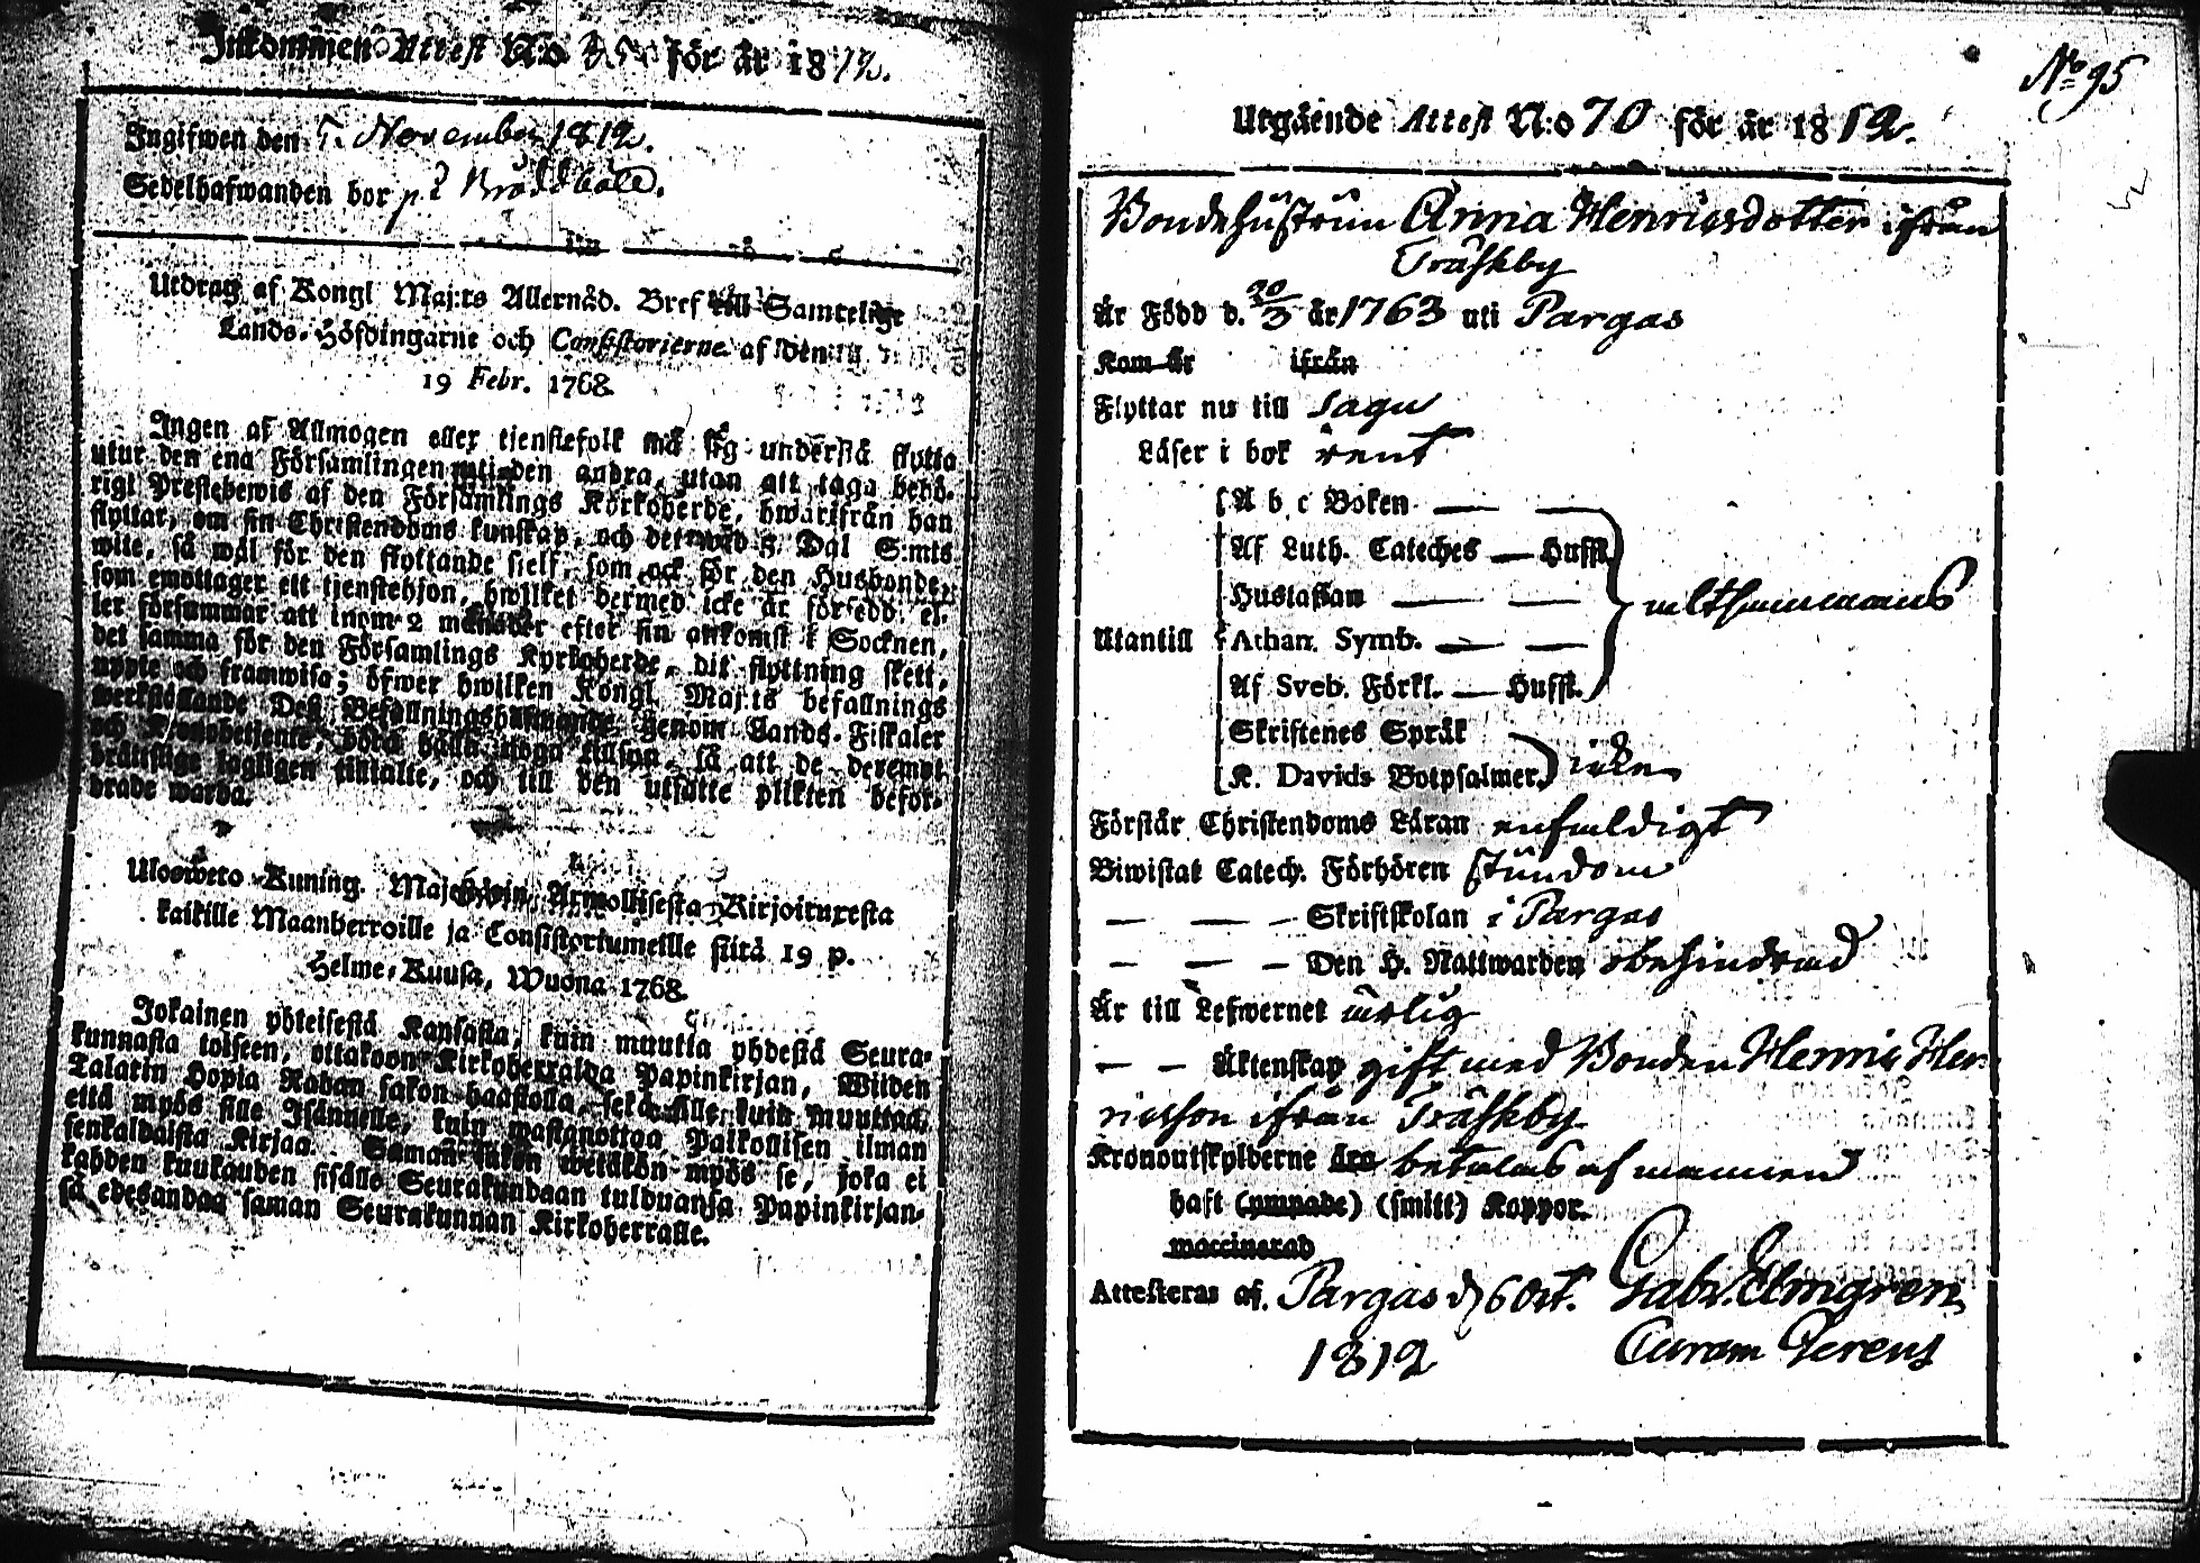 Inkommen Attest N:o för år 1812.
Ingifwen den 5. November 1812.
Sedelhafwanden bor på Bröddböle.
Utdrag af Kongl Maj:ts Allernåd. Bref till Samtelige
Lands-Höfdingarne och Consistorierne af den
19 Febr. 1768.
Ingen af Allmogen eller tjenstefolk må sig understå flytta
utur den ena Församlingen uti den andra, utan att taga behö-
rigt Prestebewis af den Församlings Kyrkoherde, hwarifrån han
flyttar, om sin Christendoms kunskap, och det wid 3. Dal S:mts
wite, så wäl för den flyttande sjelf, som ock för den Husbonde,
som emottager ett tjenstehjon, hwilket dermed icke är försedd; el-
ler försummar att inom 2 månader efter sin ankomst i Socknen,
det samma för den Församlings Kyrkoherde, dit flyttning skett,
uppte och framwisa; öfwer hwilken Kongl. Maj:ts befallnings
werkställande Deß Befallningshafwande genom Lands-Fiskaler
och Kronobetjente, böra hålla noga tillsyn, så att de deremot
bråttslige lagligen tilltalte, och till den utsatte plikten befor-
drade warda.
Ulosweto Kuning. Majestetin Armollisesta Kirjoituxesta
kaikille Maanherroille ja Consistoriumeille siitä 19 p.
Helme-Kuusa, Wuona 1768.
Jokainen yhteisestä Kansasta, kuin muutta yhdestä Seura-
kunnasta toiseen, ottakoon Kirkoherralda Papinkirjan, Wiiden
Talarin Hopia Rahan sakon haastolla, sekä sille kuin muuttaa,
että myös sille Isännelle, kuin wastanottaa Palkollisen ilman
senkaldaista Kirjaa. Saman sakon wetäkön myös se, joka ei
kahden kuukauden sisälle Seurakundaan tulduansa Papinkirjan-
sa edesandaa saman Seurakunnan Kirkoherralle.
No 95
Utgående Attest N:o 70 för år 1812.
Bondehustrun Anna Henricsdotter ifrån
Träskby
Är Född d. 20/3 år 1763 uti Pargas
Kom år ifrån
Flyttar nu till Sagu
Läser i bok rent
A b c Boken
Af Luth. Cateches — Husfl.
Hustaflan
Utantill Athan. Symb.
Af Sveb. Förkl. — Husfl.
Skriftenes Språk
K. Davids Botpsalmer icke
Förstår Christendoms Läran enfaldigt
Biwistat Catech. Förhören stundom
— — — Skriftskolan i Pargas
— — — Den H. Nattwarden obehindrad
Är till Lefwernet ärlig
— — Äktenskap gift med Bonden Henric Hen-
ricsson ifrån Träskby
Kronoutskylderne äro betalas af mannen
haft (ympade) (smitt) Koppor.
waccinerad
Attesteras af. Pargas d. 6 Oct. Gabr. Elmgren
1812 Curam Gerens